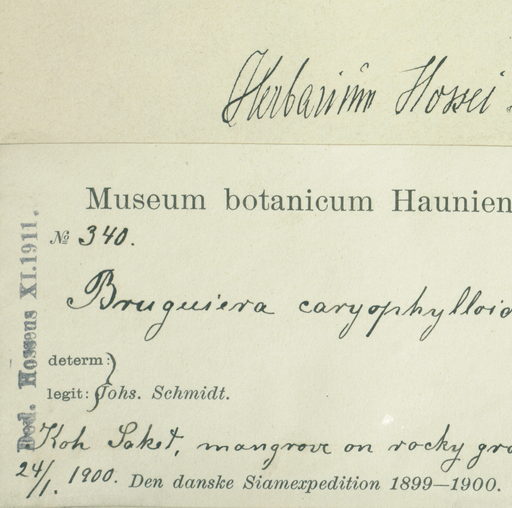 Herbarium Hossei
Museum botanicum Haunien
№ 340.
Bruguiera caryophylloid
determ:
legit: Johs. Schmidt.
Koh Saket, mangrove on rocky gro
24/1. 1900. Den danske Siamexpedition 1899—1900.
Ded. Hosseus XI.1911.